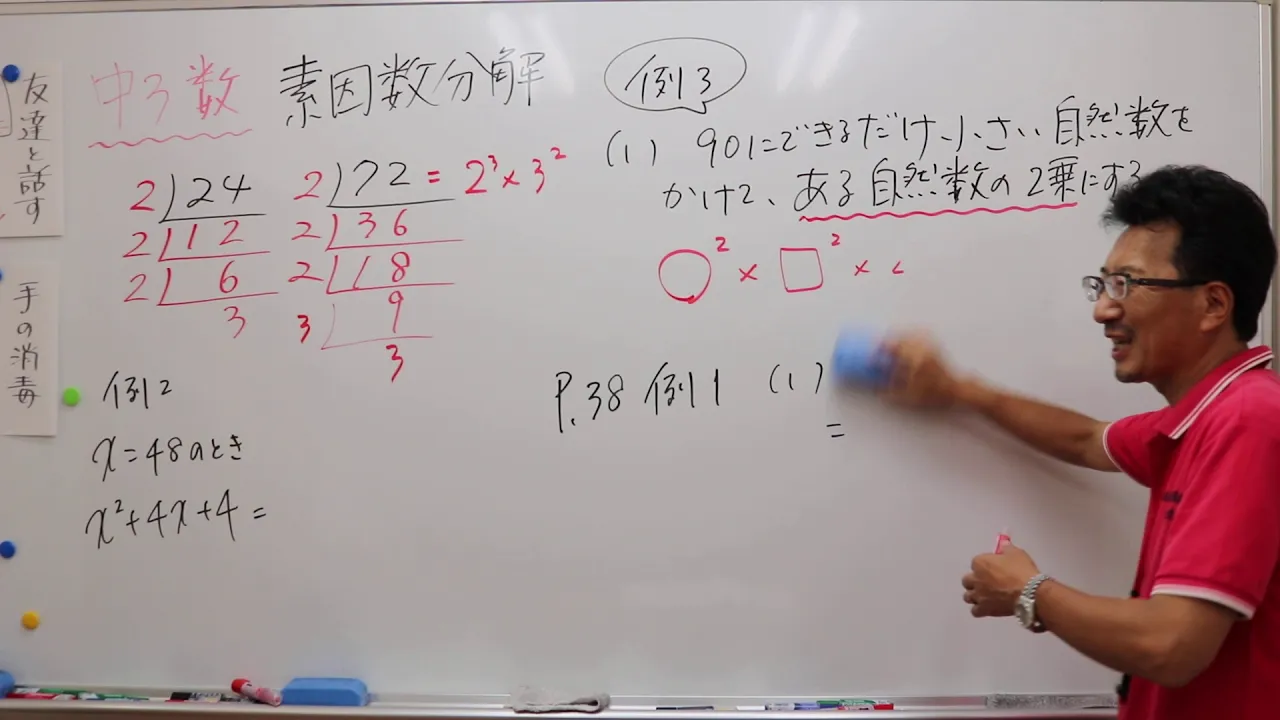 友達と話す
手の消毒
中3数 素因数分解
2)24
2)12
2)6
3
2)72 = 2³×3²
2)36
2)18
3)9
3
例2
x=48のとき
x²+4x+4=
例3
(1) 90にできるだけ小さい自然数を
かけて、ある自然数の2乗にする
○²×□²×
P.38 例1 (1)
=